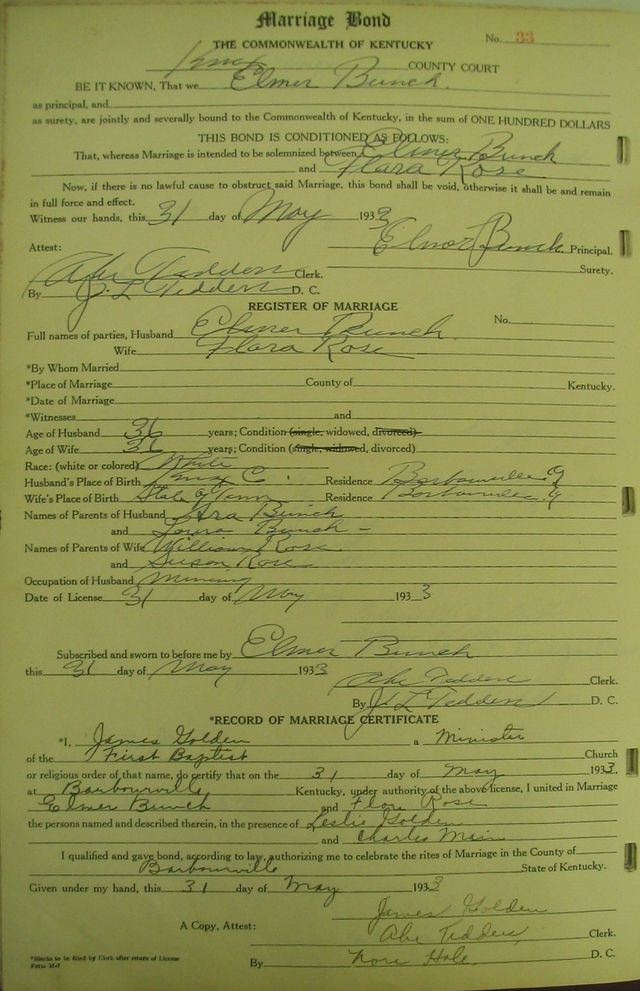 Marriage Bond
No. 33
THE COMMONWEALTH OF KENTUCKY
Knox COUNTY COURT
BE IT KNOWN, That we Elmer Bunch.
as principal, and
as surety, are jointly and severally bound to the Commonwealth of Kentucky, in the sum of ONE HUNDRED DOLLARS
THIS BOND IS CONDITIONED AS FOLLOWS:
That, whereas Marriage is intended to be solemnized between Elmer Bunch
and Flara Rose
Now, if there is no lawful cause to obstruct said Marriage, this bond shall be void, otherwise it shall be and remain
in full force and effect.
Witness our hands, this 31 day of May 1933
Attest: Elmer Bunch Principal.
Surety.
Abe Tedders Clerk.
By J. L Tedders D. C.
REGISTER OF MARRIAGE
No.
Full names of parties, Husband Elmer Bunch.
Wife Flara Rose
*By Whom Married
*Place of Marriage County of Kentucky.
*Date of Marriage
*Witnesses and
Age of Husband 36 years; Condition (single, widowed, divorced)
Age of Wife 36 years; Condition (single, widowed, divorced)
Race: (white or colored) White
Husband's Place of Birth Knox C. Residence Barbourville
Wife's Place of Birth State of Tenn Residence Barbourville
Names of Parents of Husband Bunch
and Bunch
Names of Parents of Wife William Rose
and Susan Rose
Occupation of Husband Mining
Date of License 31 day of May 1933
Subscribed and sworn to before me by Elmer Bunch
this 31 day of May 1933
Abe Tedders Clerk.
By J. L Tedders D. C.
*RECORD OF MARRIAGE CERTIFICATE
*I, James Golden a Minister
of the First Baptist Church
or religious order of that name, do certify that on the 31 day of May 1933
at Barbourville Kentucky, under authority of the above license, I united in Marriage
Elmer Bunch and Flora Rose
the persons named and described therein, in the presence of Leslie Golden
and Charles
I qualified and gave bond, according to law, authorizing me to celebrate the rites of Marriage in the County of
Barbourville State of Kentucky.
Given under my hand, this 31 day of May 1933
James Golden
A Copy, Attest: Abe Tedders, Clerk.
By Nora Hale D. C.
*Blanks to be filed by Clerk after return of License
Form M-7